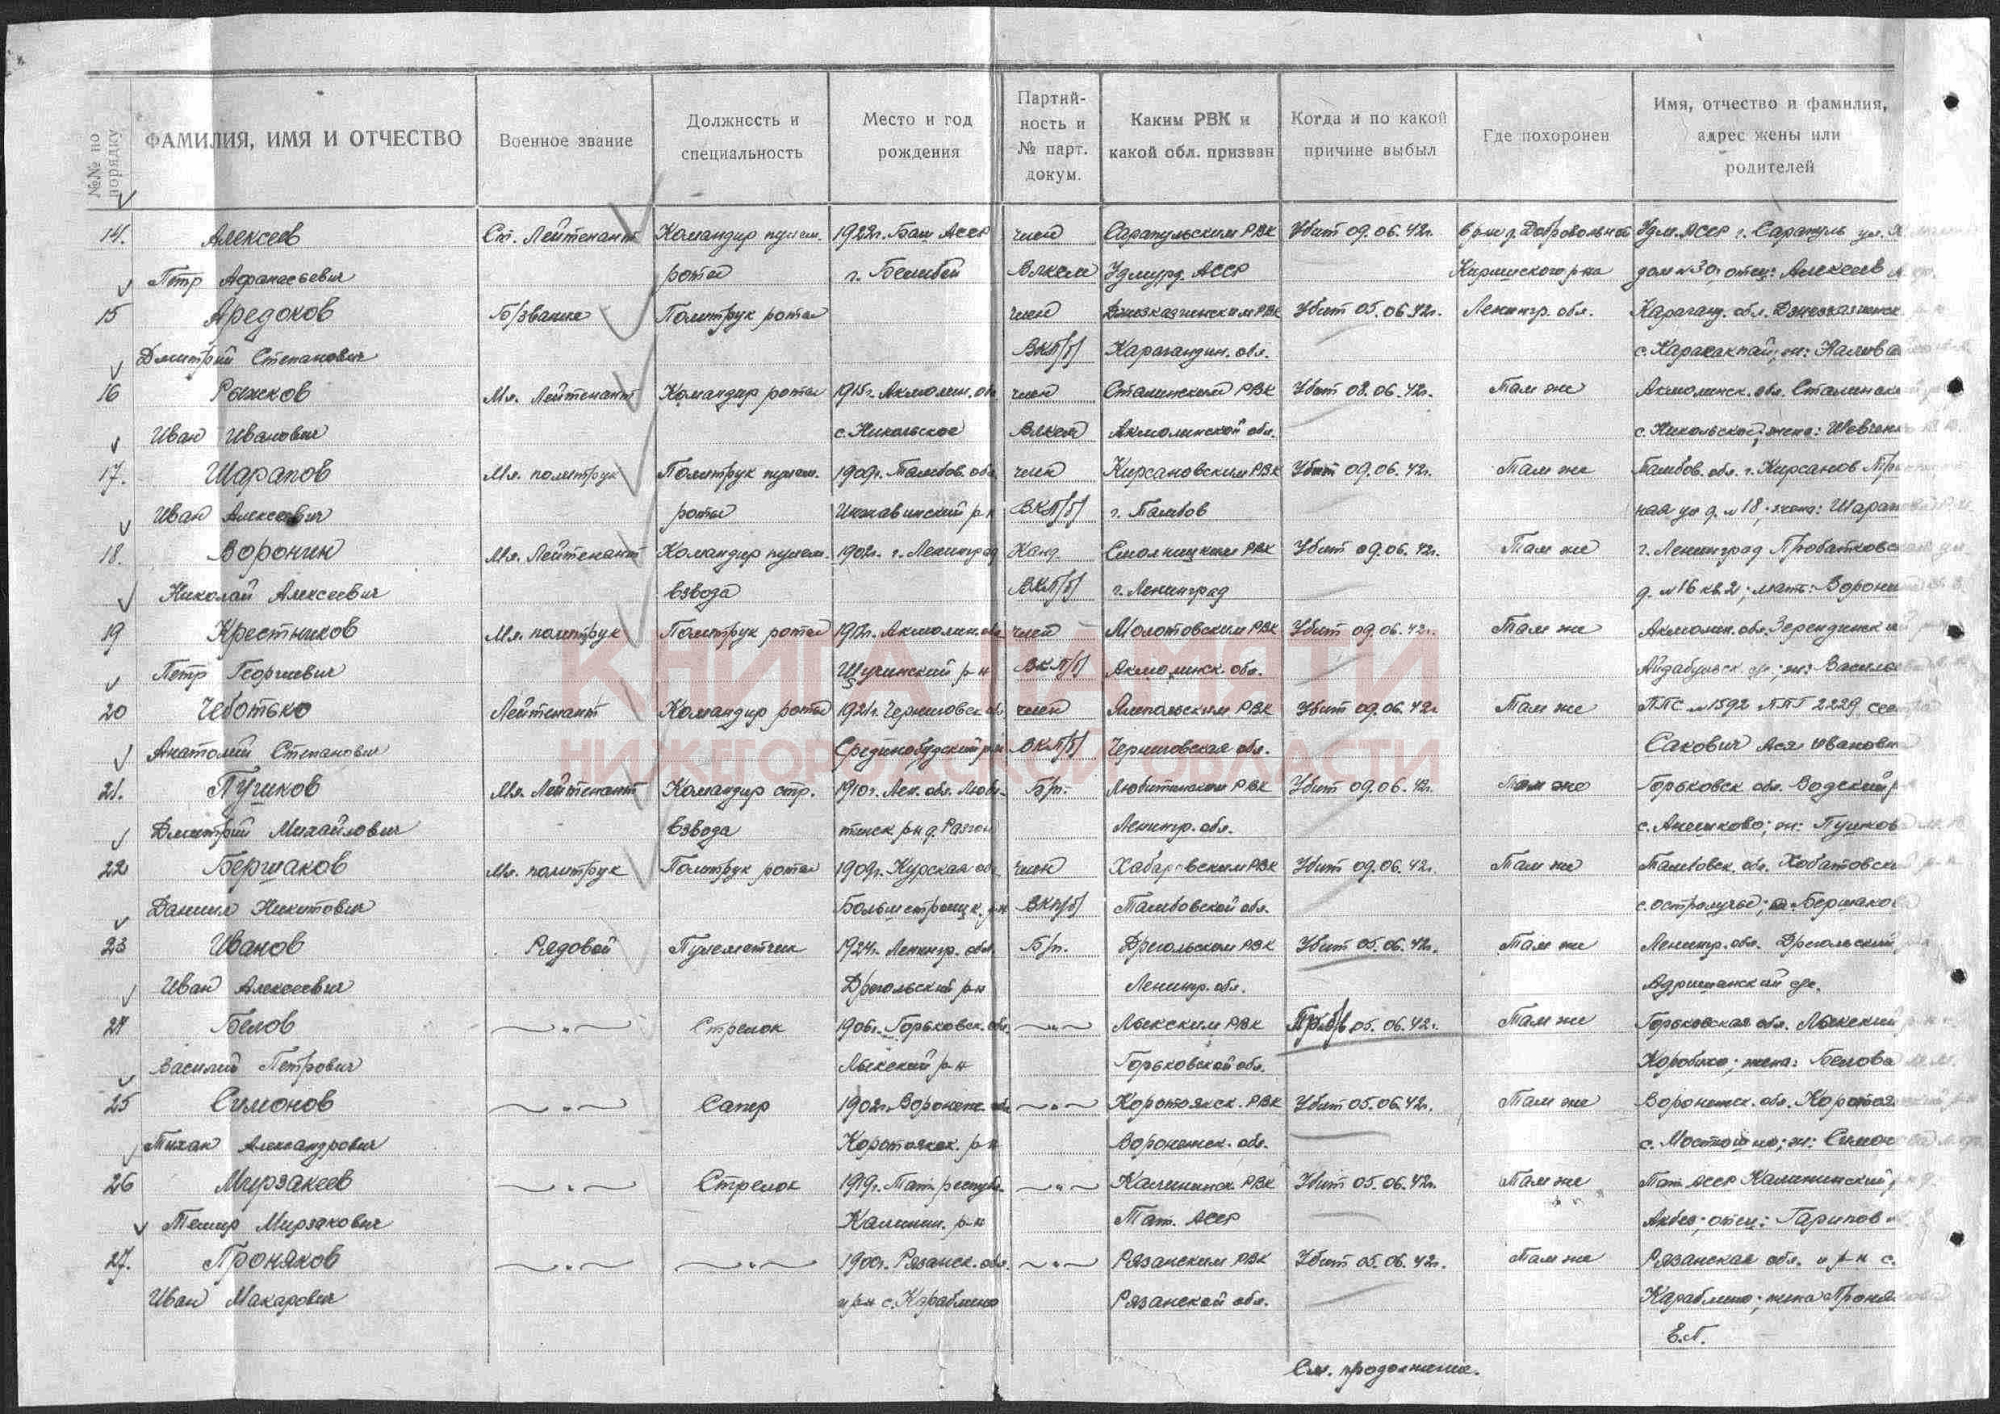 №№ по порядку
ФАМИЛИЯ, ИМЯ И ОТЧЕСТВО
Военное звание
Должность и специальность
Место и год рождения
Партийность и № парт. докум.
Каким РВК и какой обл. призван
Когда и по какой причине выбыл
Где похоронен
Имя, отчество и фамилия, адрес жены или родителей
14. Алексеев Ст. Лейтенант Командир пулем. 1922г. Баш АССР член Сарапульским РВК Убит 09.06.42г. Удм. АССР г. Сарапуль ул.
Петр Афанасьевич роты г. Белибей Влксм Удмурд. АССР Киришского р-на дом №30, отец: Алексеев
15 Аредаков Б/звание Политрук роты член Джезказгинским РВК Убит 05.06.42г. Ленингр. обл. Караганд. обл.
Дмитрий Степанович ВКП/б/ Карагандин. обл.
16 Рыжков Мл. Лейтенант Командир роты 1915г. Акмолин. об член Сталинским РВК Убит 08.06.42г. Там же Акмолинск. обл.
Иван Иванович с. Никольское Влксм Акмолинской обл. с. Никольское, жена:
17. Шарапов Мл. политрук Политрук пулем. 1909г. Тамбов. обл член Кирсановским РВК Убит 09.06.42г. Там же Тамбов. обл. г. Кирсанов
Иван Алексеевич роты Инжавинский р-н ВКП/б/ г. Тамбов ная ул д. №18; жена:
18. Воронин Мл. Лейтенант Командир пулем. 1902г. г. Ленинград Канд Смолницким РВК Убит 09.06.42г. Там же г. Ленинград
Николай Алексеевич взвода ВКП/б/ г. Ленинград д. №16 кв.2; мать:
19 Крестников Мл. политрук Политрук роты 1912г. Акмолин. обл член Молотовским РВК Убит 09.06.42г. Там же Акмолин. обл.
Петр Георгиевич Щучинский р-н ВКП/б/ Акмолинск. обл.
20 Чеботько Лейтенант Командир роты 1921г. Черниговск об член Ямпольским РВК Убит 09.06.42г Там же ППС №1592 ППГ 2229, сестра
Анатолий Степанович Срединобудский р-н ВКП/б/ Черниговская обл. Сакович Ася Ивановна
21. Пушков Мл. Лейтенант Командир стр. 1910г. Лен. обл. Люби- Б/п. Любытинским РВК Убит 09.06.42г. Там же Горьковск обл. Водский
Дмитрий Михайлович взвода тинск. р-н д. Ленингр. обл. с. Анешково; ж:
22 Бершаков Мл. политрук Политрук роты 1909г. Курская об. член РВК Убит 09.06.42г. Там же Тамбовск. обл.
Даниил Никитович ВКП/б/ Тамбовской обл.
23 Иванов Рядовой Пулеметчик 1924г. Ленингр. обл. Б/п. Дрегольским РВК Убит 05.06.42г. Там же Ленингр. обл. Дрегольский
Иван Алексеевич Дрегольский р-н Ленингр. обл.
24 Белов —„— Стрелок 1906г. Горьковск. обл. —„— Лыскским РВК Пр.б/в 05.06.42г. Там же Горьковская обл. Лыскский
Василий Петрович Лыскский р-н Горьковской обл. жена: Белова
25 Симонов —„— Сапер 1902г. Воронеж. обл —„— Коротоякск. РВК Убит 05.06.42г. Там же Воронежск. обл.
Тихан Александрович Коротоякск. р-н Воронежск. обл.
26 Мурзакеев —„— Стрелок 1919г. Тат. республ. —„— Калининск РВК Убит 05.06.42г. Там же Тат. АССР Калининский
Темир Мирзакович Калинин. р-н Тат. АССР отец: Гарипов
27. Проняков —„— —„— 1900г. Рязанск. обл. —„— Рязанским РВК Убит 05.06.42г. Там же Рязанская обл. и р-н с.
Иван Макарович и р-н с. Караблино Рязанской обл. Караблино; жена
Е.П.
См. продолжение.
КНИГА ПАМЯТИ
НИЖЕГОРОДСКОЙ ОБЛАСТИ